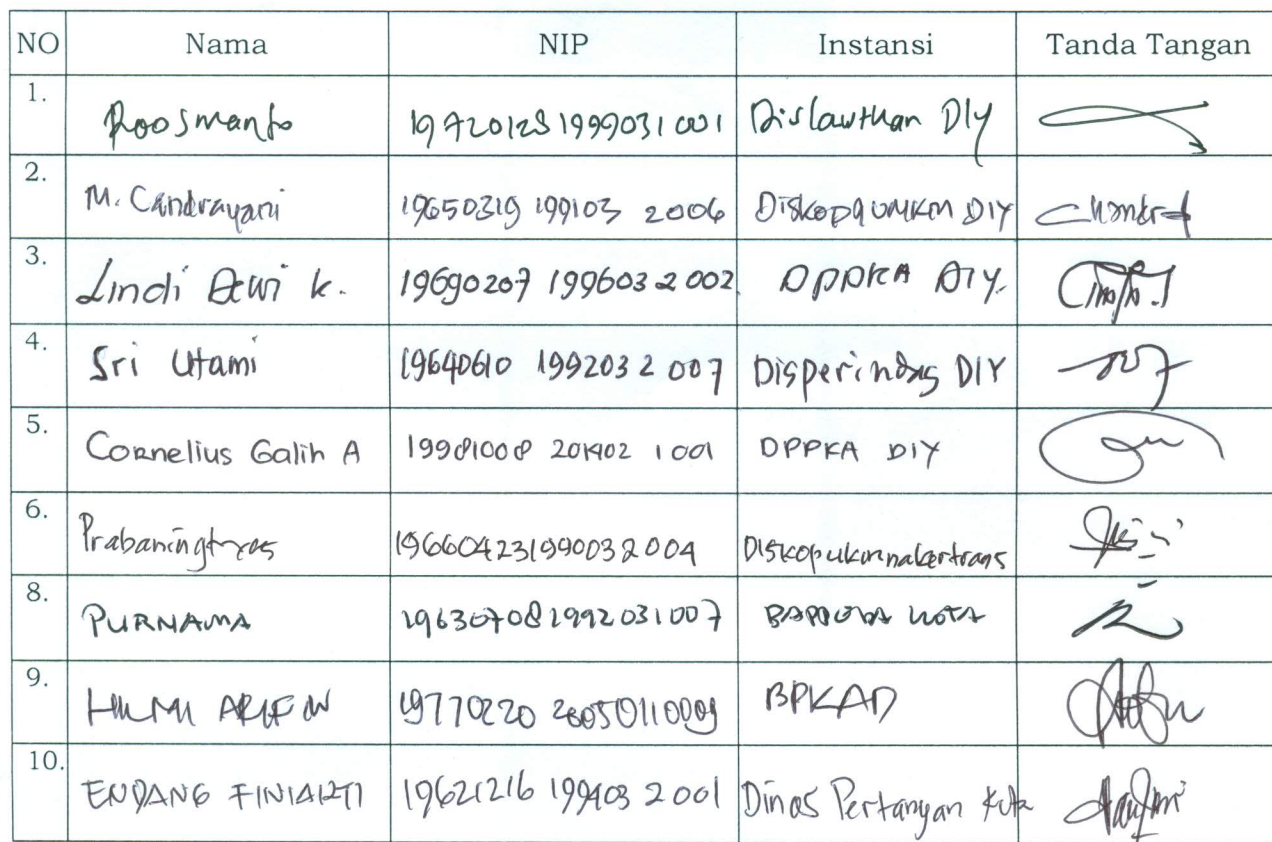 NO Nama NIP Instansi Tanda Tangan
1. Roosmanto 19720128 1999031 001 Dislautkan DIY
2. M. Candrayani 19650319 199103 2006 Diskopumkm DIY
3. Lindi Dewi K. 19690207 199603 2 002. DPPKA DIY.
4. Sri Utami 19640610 199203 2 007 Disperindag DIY
5. Cornelius Galih A 19901008 201402 1 001 DPPKA DIY
6. Prabaningtyas 196604231990032004 Diskopukmnakertrans
8. PURNAMA 196307081992031007 BAPPEDA KOTA
9. HILMI ARIFIN 19770220 200501 1 009 BPKAD
10. ENDANG FINIARTI 19621216 199403 2 001 Dinas Pertanyan Kota